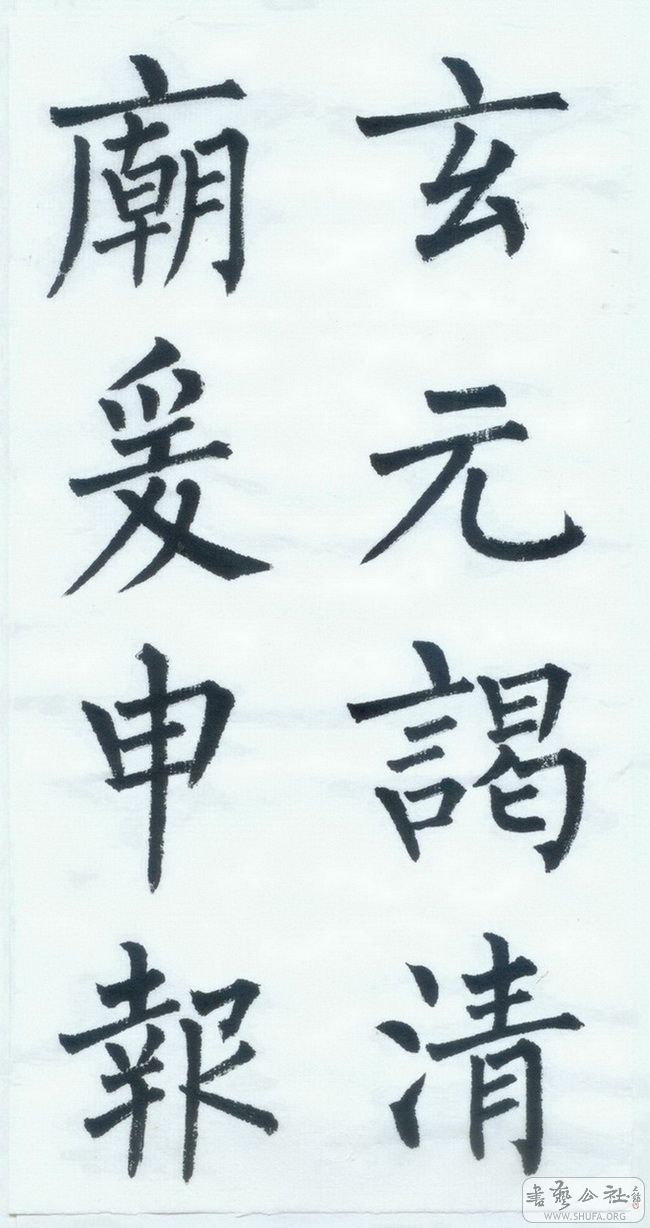 玄元謁清
廟爰申報
書藝公社
WWW.SHUFA.ORG